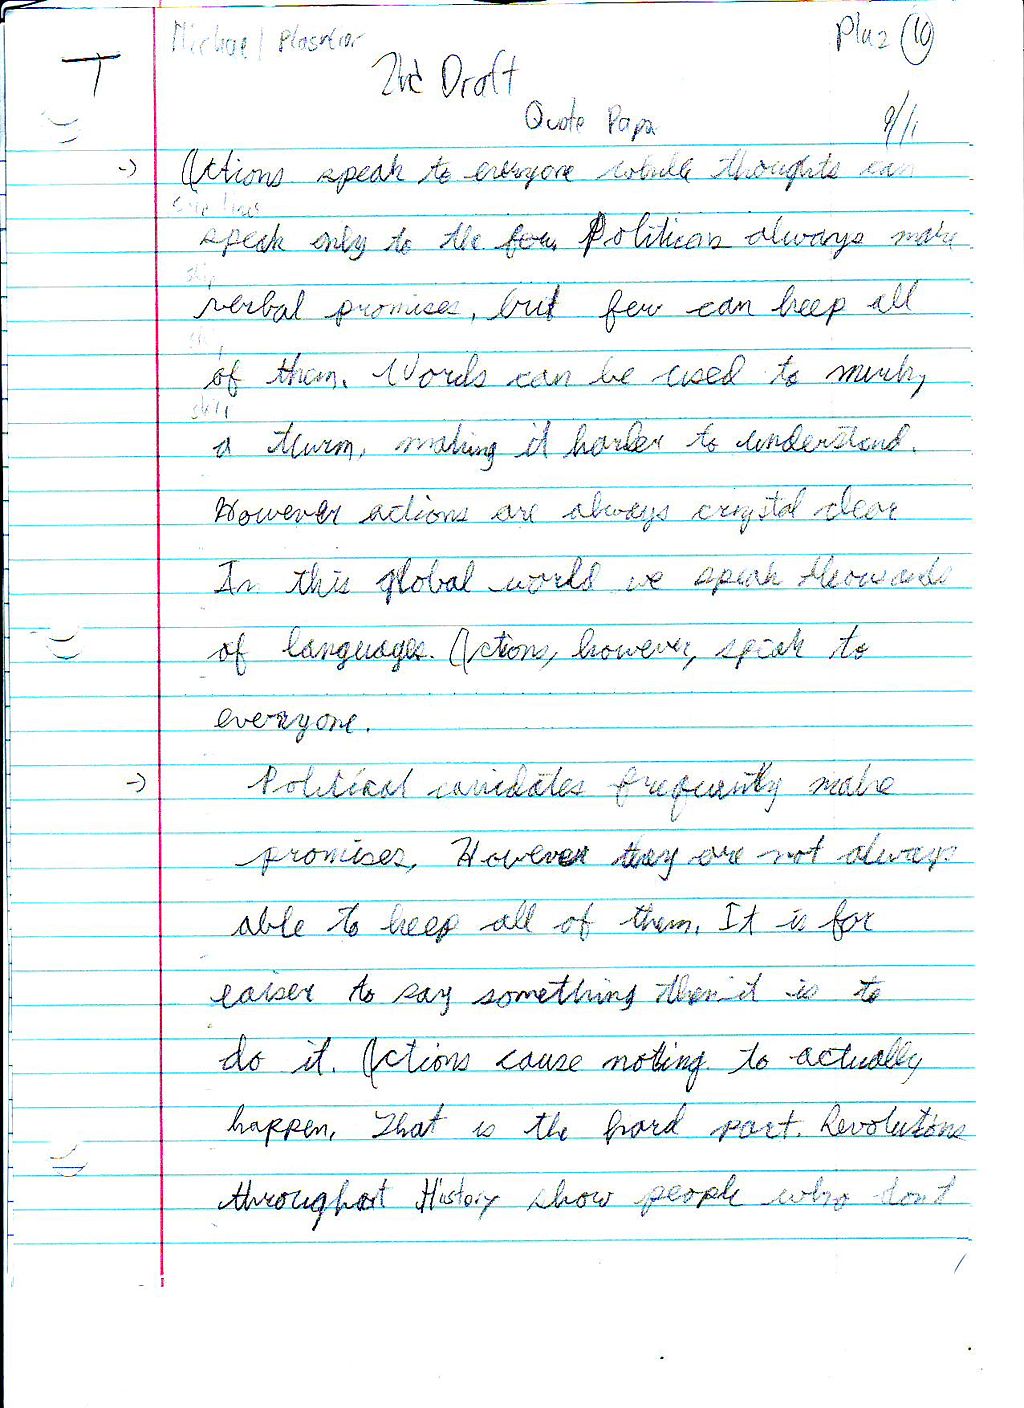 Michael
Plu 2 (10)
T
2nd Draft
Quote Papr
9/1
-> Actions speak to everyone while thoughts can
skip lines
speak only to the few. Politicans always make
skip
verbal promises, but few can keep all
of them. Words can be used to murky
skip
a thurm, making it harder to understand.
However actions are always crystal clear
In this global world we speak thousands
of languages. Actions, however, speak to
everyone.
-> Political canidates frequently make
promises, However they are not always
able to keep all of them. It is far
eaiser to say something then it is to
do it. Actions cause noting to actually
happen, That is the hard part. Revolutions
throughout History show people who dont